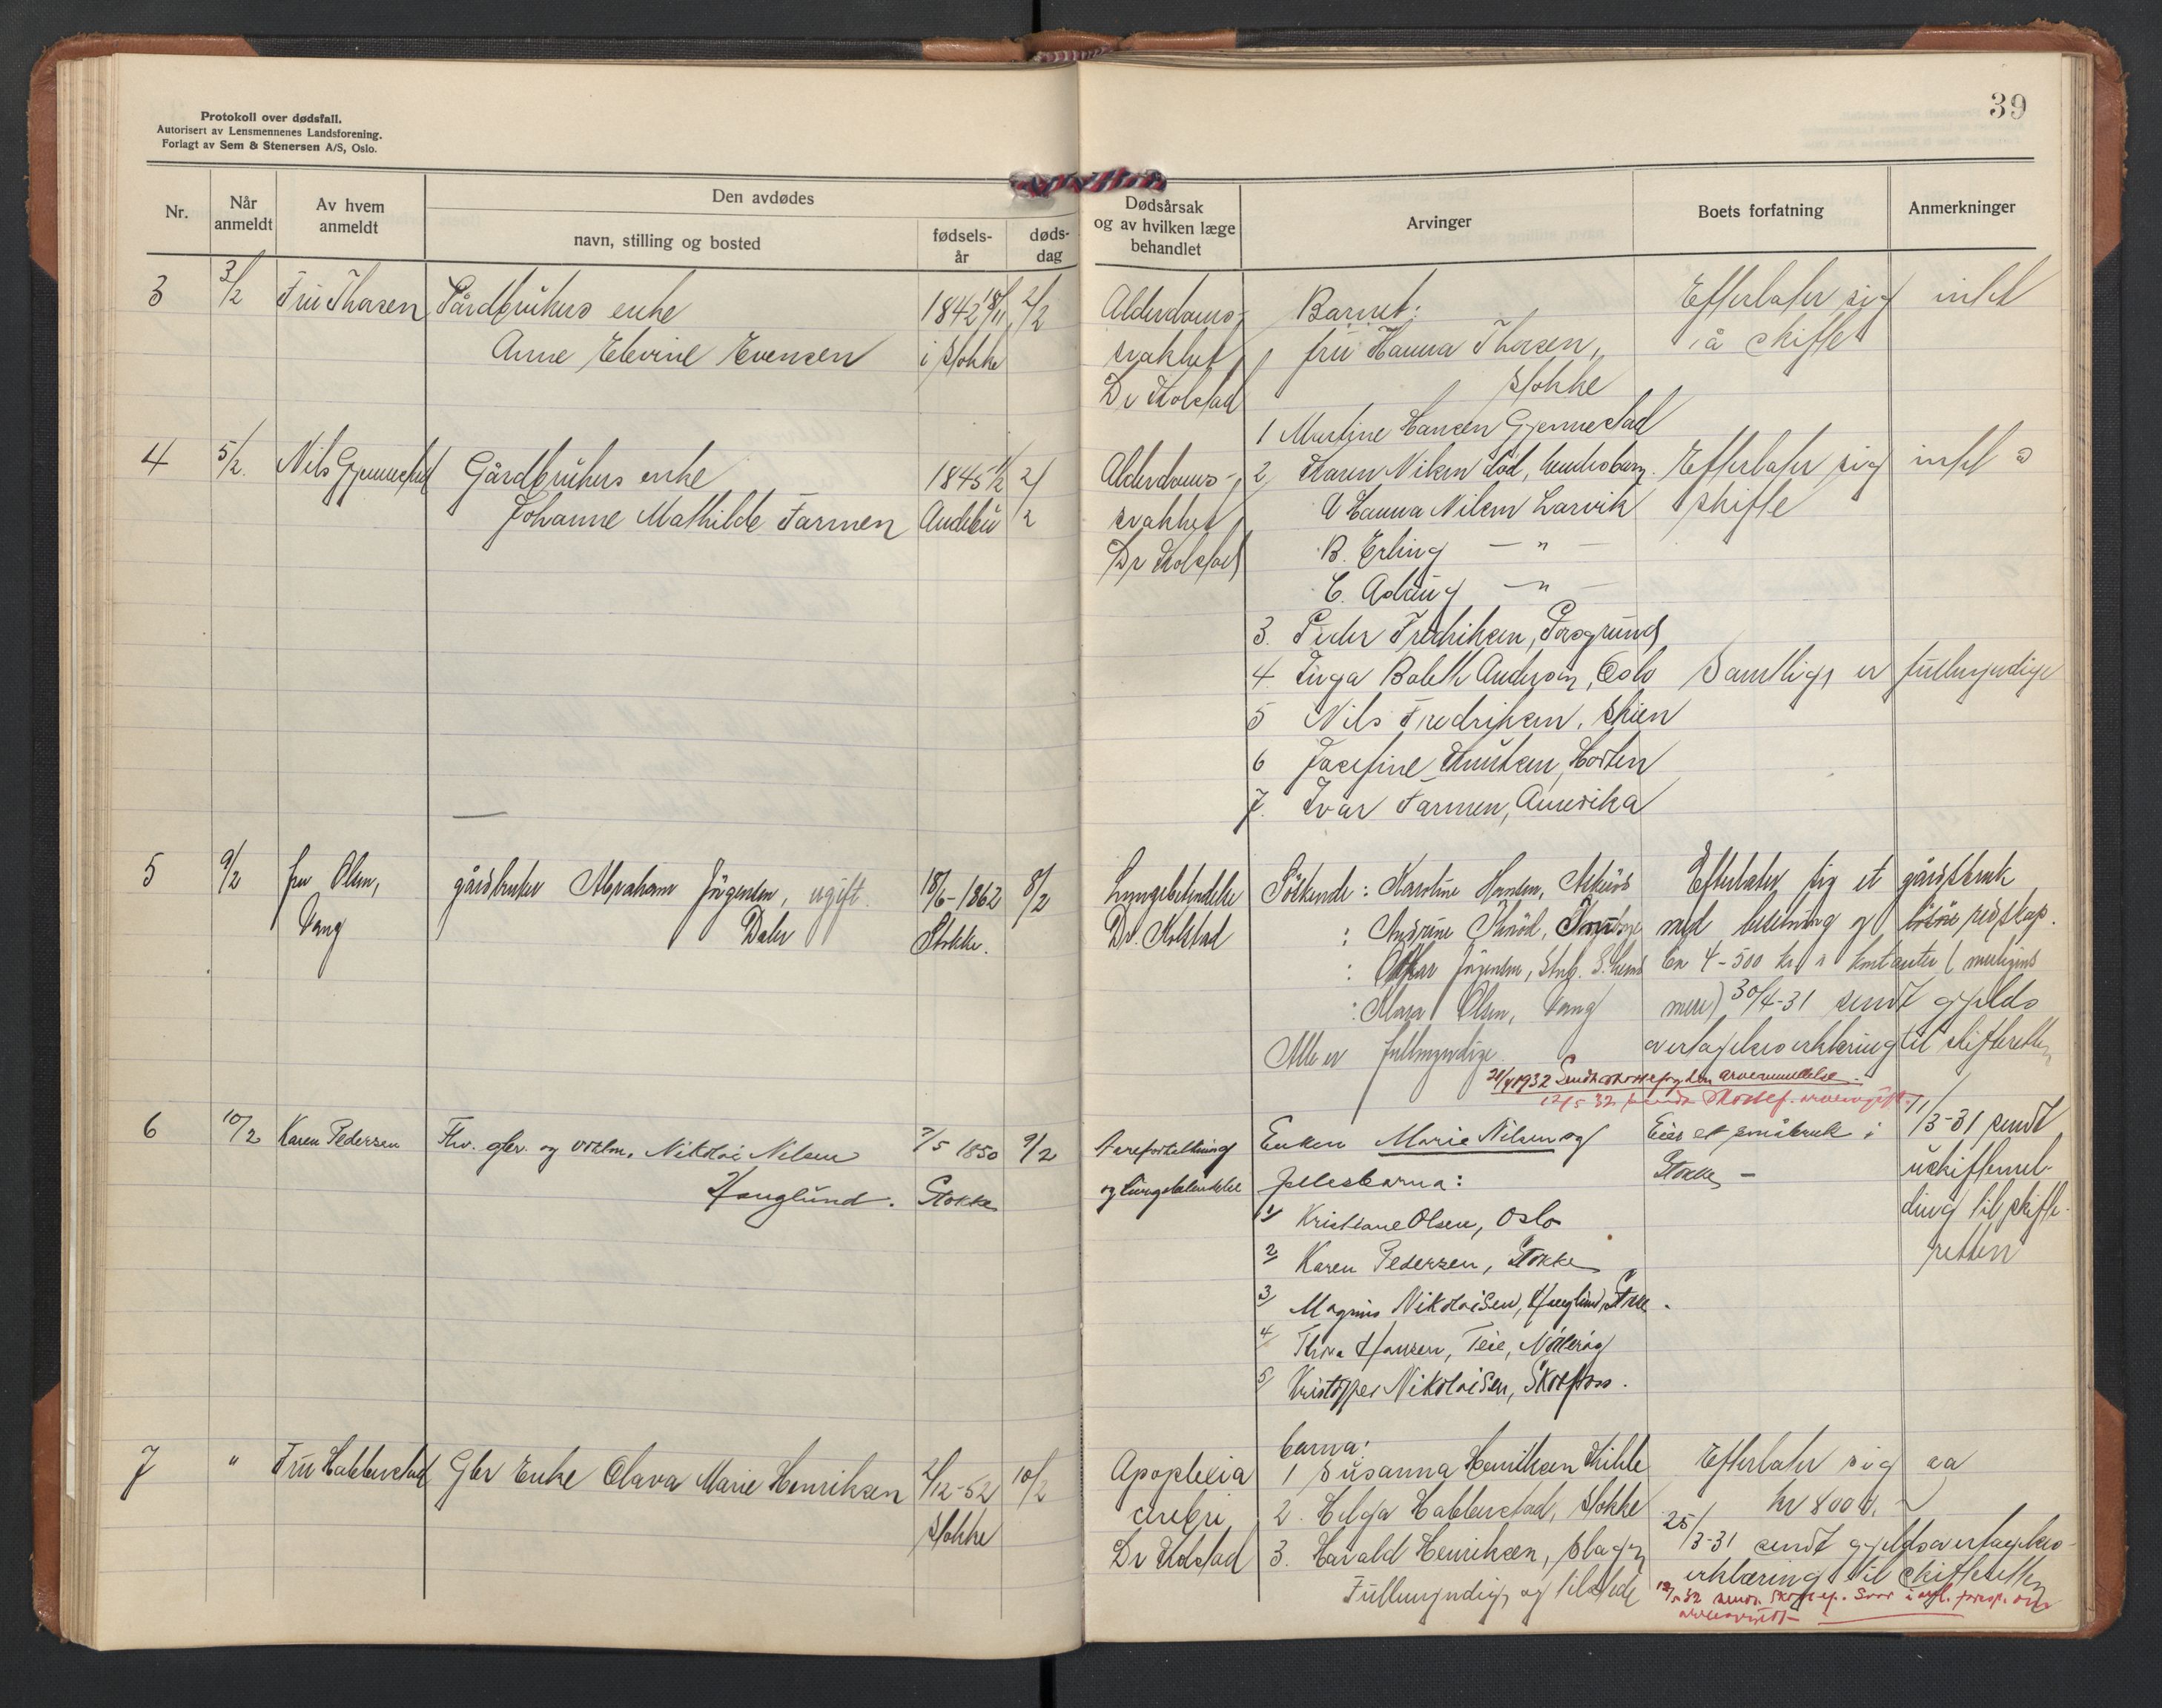 Protokoll over dødsfall.
Autorisert av Lensmennenes Landsforening.
Forlagt av Sem & Stenersen A/S, Oslo.
39
Nr.
Når anmeldt
Av hvem anmeldt
Den avdødes
navn, stilling og bosted
fødsels-år
døds-dag
Dødsårsak og av hvilken læge behandlet
Arvinger
Boets forfatning
Anmerkninger
3 3/2 Fru Thorsen Gårdbrukers enke 1842 18/11 2/2 Alderdoms- Barnet: Efterlater sig intet
Anne Elevine Evensen i Stokke svakhet fru Hanna Thorsen, å skifte
Dr Kolstad Stokke
1 Martine Hansen Gjennestad
4 5/2. Nils Gjennestad Gårdbrukers enke 1845 2/2 Alderdoms- 2 Karen Nilsen død, hendes barn. Efterlater sig intet å
Johanne Mathilde Farmen Andebu svakhet A Hanna Nilsen Larvik skifte
Dr Kolstad B. Erling — " —
C. Aslaug — " —
3. Peder Fredriksen, Porsgrund
4. Inga Boleth Andersen, Oslo Samtlige er fullmyndige
5 Nils Fredriksen, Skien
6 Josefine Knutsen, Horten
7. Ivar Farmen, Amerika
5 9/2 fru Olsen, gårdbruker Abraham Jörgensen, ugift. 18/6-1862 8/2 Lungebetendelse Söskende: Karoline Hansen, Efterlater sig et gårdsbruk
Vang Daler Stokke. Dr. Kolstad : Andrine med besetning og redskap.
: Oskar Jörgensen, Ca 4-500 kr i kontanter (muligens
: Klara Olsen, Vang mere) 30/4-31 sendt gjelds
Alle er fullmyndige. overtagelseserklæring til skifteretten
1932 Sendt arvemeldelse.
12/5 32 sendt
6 10/2 Karen Pedersen Fhv. gbr. og Nikolai Nilsen 7/5 1850 9/2 Areforkalkning Enken Marie Nilsen og Eier et småbruk i 11/3-31 sendt
Hauglund. Stokke og lungebetendelse fellesbarna: Stokke - uskiftemel-
1/ Kristiane Olsen, Oslo ding til skifte-
2/ Karen Pedersen, Stokke retten
3/ Magnus Nikolaisen, Hauglund, Stokke.
4/ Thora Hansen, Teie, Nötteröy
5/ Kristoffer Nikolaisen, Skotfoss.
barna:
7 " Fru Habberstad Gbr Enke Olava Marie Henriksen 2/12-52 10/2 Apoplexia 1 Susanna Henriksen Efterlater sig ca
Stokke cerebri 2. Helga Habberstad, Stokke kr 800
Dr Kolstad 3. Harald Henriksen, Slagen 25/3-31 sendt gjeldsovertagelses-
Fullmyndige og tilstede erklæring til skifteretten
12/5 32 sendt Svar